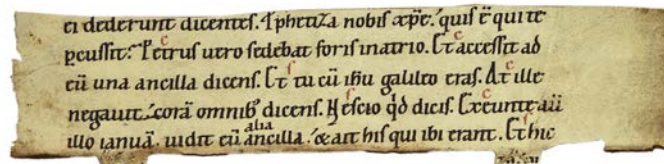 ei dederunt dicentes. Ꝓphetiza nobis xp̄e. quis ē qui te
percussit? Petrus uero sedebat foris in atrio. Et accessit ad
eū una ancilla dicens. Et tu cū ihu galileo eras. At ille
negauit corā omnibꝰ dicens. Nescio qd̄ dicis. Exeunte aū
illo ianuā. uidit eū alia ancilla. & ait his qui ibi erant. Et hic